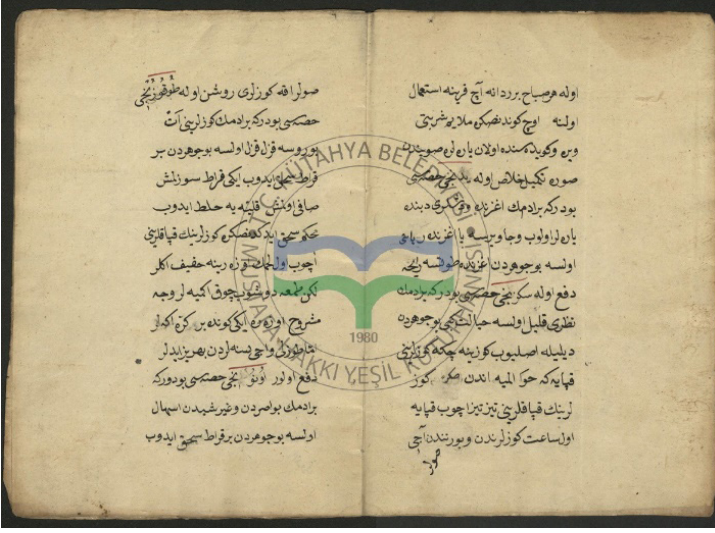 اوله هر صباح بردانه آچ قرینه استعمال
اولنه اوچ کوندنصکره ملایم شربتی
ویره و کویده سنده اولان یاره لری صویندن
صوره تکمیل خلاص اوله یدنجی خصه سی
بودرکه برادمك اغزنده و دیشلری دبنده
یاره لر اولوب وجاویرسه یا اغزنده رایحه
اولسه بوجوهردن اغزنده طوتسه رایحه
دفع اوله سکزنجی خصه سی بودرکه برادمك
نظری قلیل اولسه حیالت کبی بوجوهرده
دیلیله اصلیوب کوزینه چکه کوزلرینی
قپایه که حوا المیه اندن صکره کوز
لرینك قپاقلرینی تیز تیز اچوب قپایه
اول ساعت کوزلرندن وبورنندن آجی
صولر
صولر اقه کوزلری روشن اوله طوقوزنجی
خصه سی بودرکه برادمك کوزلرینی آت
بوروسه قزل قزل اولسه بوجوهردن بر
قراط سحق ایدوب ایکی قراط سوزلمش
صافی اولمش قلیه یه خلط ایدوب
محکم سحق ایدکدنصکره کوزلرینك قپاقلرینی
اچوب اول لحمك اوزرینه حفیف اکلر
لکن طمعه دوشوب چوق اکمیه لر وجه
مشروح اوزره ایکی کونده بر کره اکه لر
طورلی واجی نسنه لردن پهریز ایدلر
دفع اولور اوننجی خصه سی بودورکه
برادمك بواصردن وغیر شیدن اسهال
اولسه بوجوهردن بر قراط سحق ایدوب
T.C. KÜTAHYA BELEDİYESİ
MUSTAFA HAKKI YEŞİL KÜTÜPHANESİ
1980